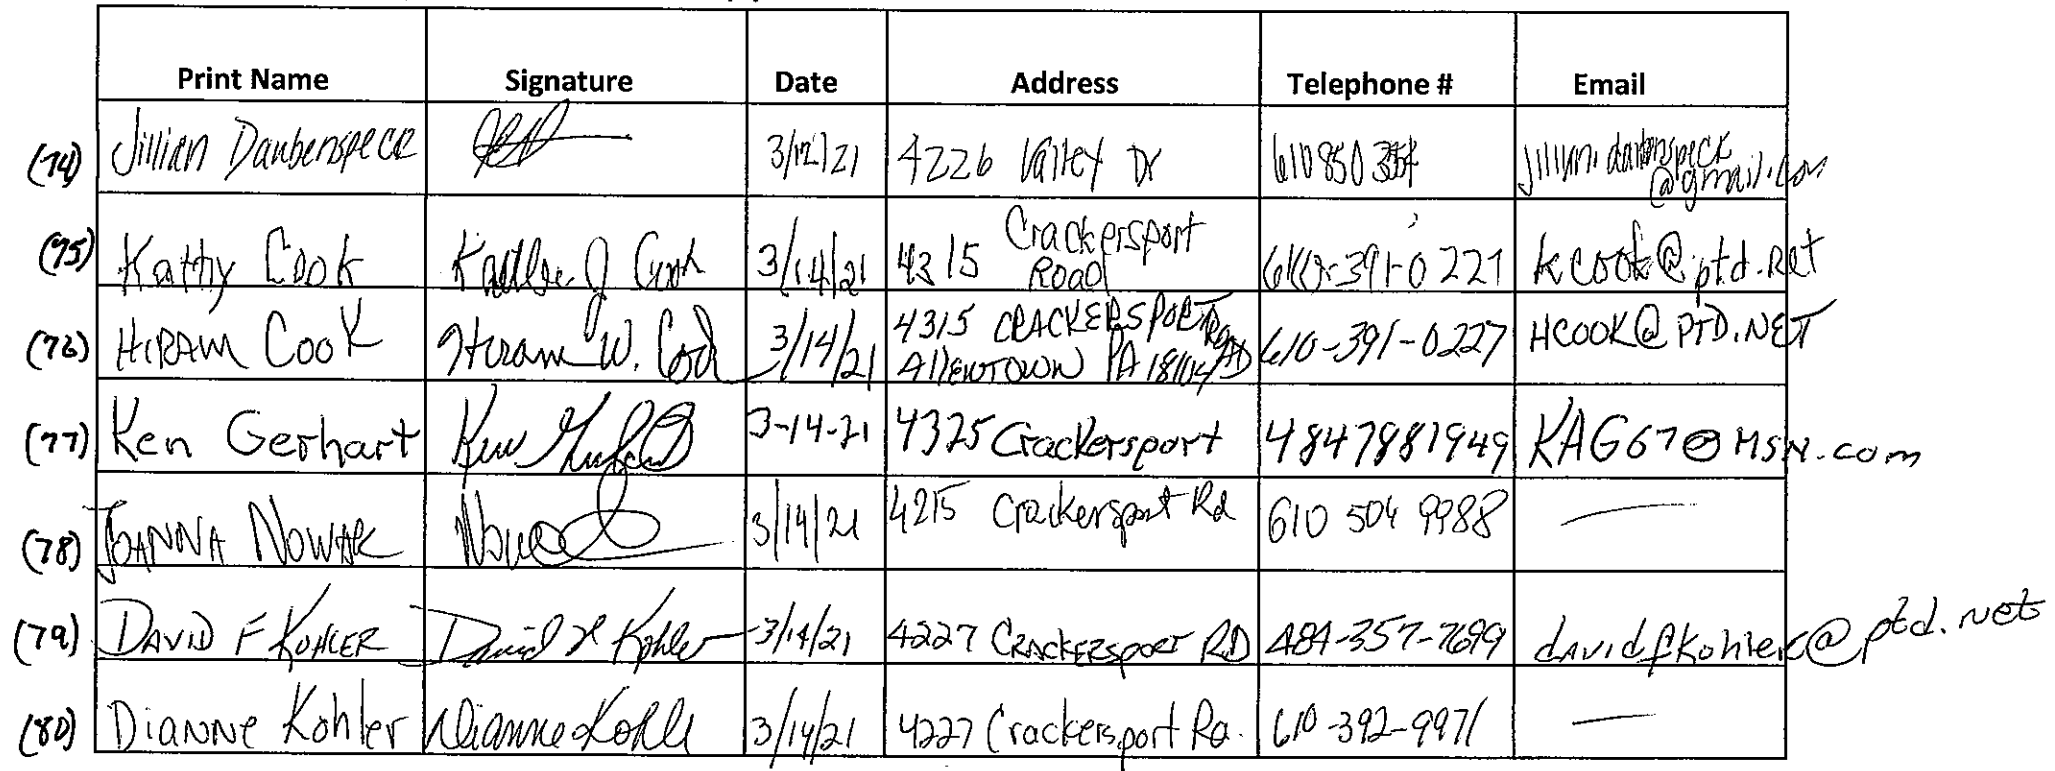 Print Name Signature Date Address Telephone # Email
(74) Jillian Daubenspeck 3/12/21 4226 Valley Dr 610 850 jillian.daubenspeck
@gmail.com
(75) Kathy Cook Cook 3/14/21 4315 Crackersport
Road 610-391-0227 kcook@ptd.net
(76) HIRAM COOK Hiram W. Cook 3/14/21 4315 CRACKERSPORT ROAD
AllENTOWN PA 18104 610-391-0227 HCOOK@PTD.NET
(77) Ken Gerhart Ken Gerhart 3-14-21 4325 Crackersport 4847981949 KAG67@MSN.com
(78) JOANNA NOWAK Nowak 3/14/21 4215 Crackersport Rd 610 504 9988 —
(79) DAVID F KOHLER David F Kohler 3/14/21 4227 CRACKERSPORT RD 484-357-7699 davidfkohler@ptd.net
(80) Dianne Kohler Dianne Kohler 3/14/21 4227 Crackersport Rd. 610-392-9971 —